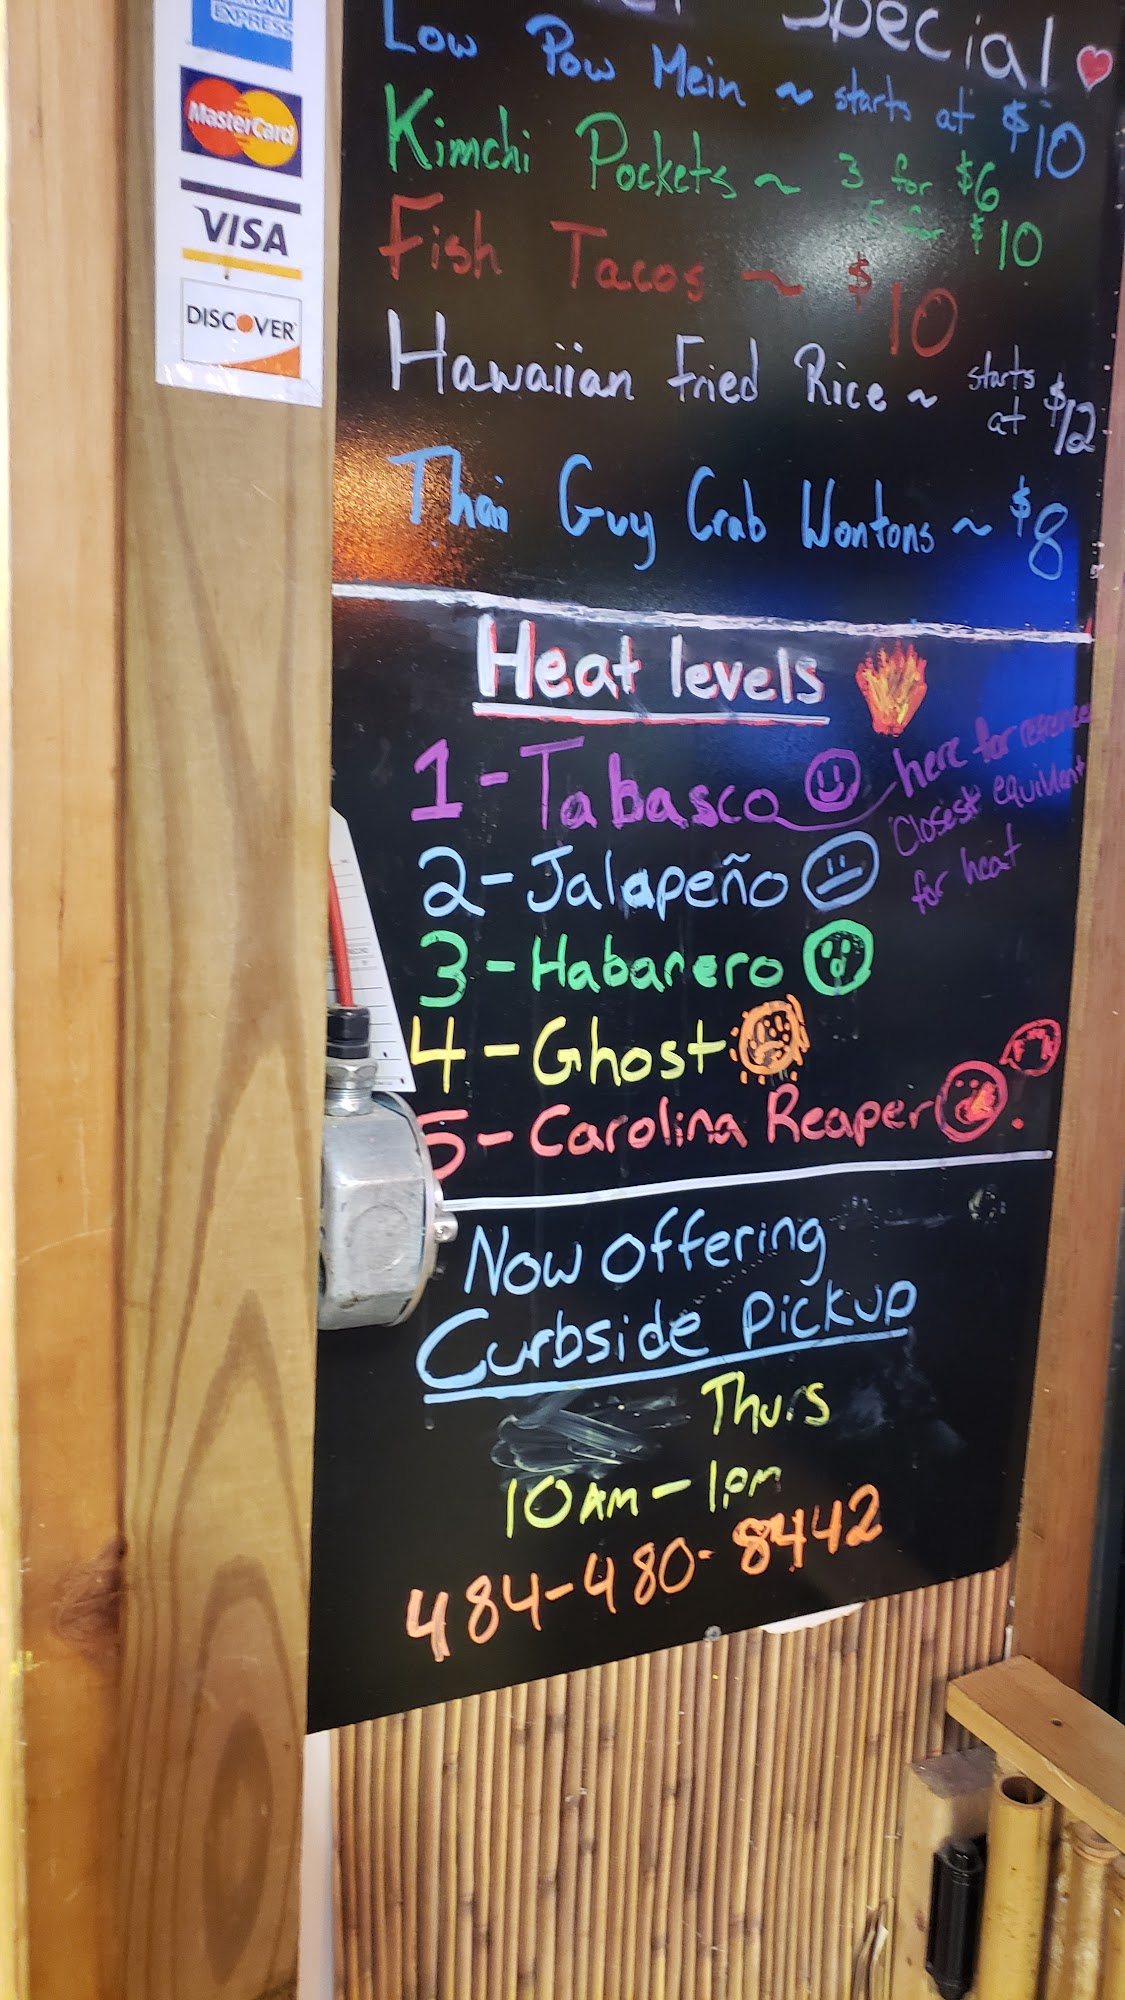 EXPRESS
MasterCard
VISA
DISCOVER
Special
Low Pow Mein ~ starts at $10
Kimchi Pockets ~ 3 for $6
5 for $10
Fish Tacos ~ $10
Hawaiian Fried Rice ~ starts at $12
Thai Guy Crab Wontons ~ $8
Heat levels
1 - Tabasco
here for reference
Closest equivilent
for heat
2 - Jalapeño
3 - Habanero
4 - Ghost
5 - Carolina Reaper
Now offering
Curbside Pickup
Thurs
10AM - 1PM
484-480-8442